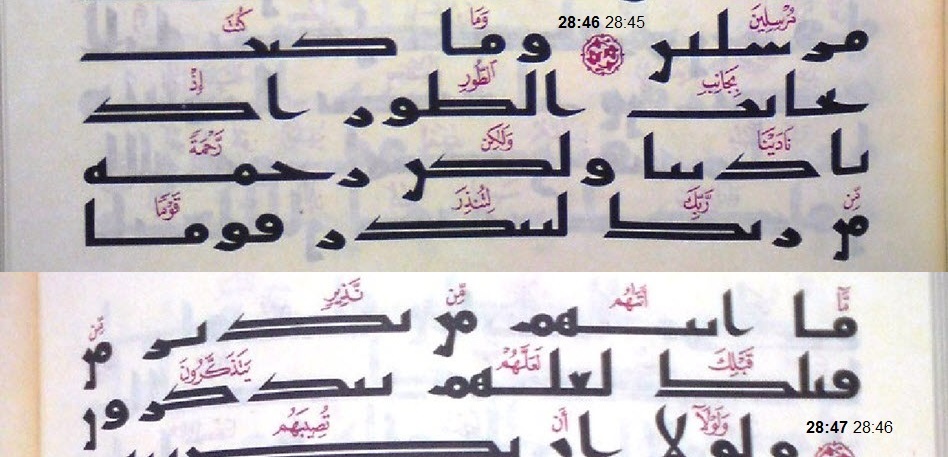 28:46 28:45
مُرْسِلِينَ وَمَا كُنتَ
بِجَانِبِ ٱلطُّورِ إِذْ
نَادَيْنَا وَلَٰكِن رَّحْمَةً
مِّن رَّبِّكَ لِتُنذِرَ قَوْمًا
مَّا أَتَىٰهُم مِّن نَّذِيرٍ مِّن
قَبْلِكَ لَعَلَّهُمْ يَتَذَكَّرُونَ
28:47 28:46
وَلَوْلَآ أَن تُصِيبَهُم